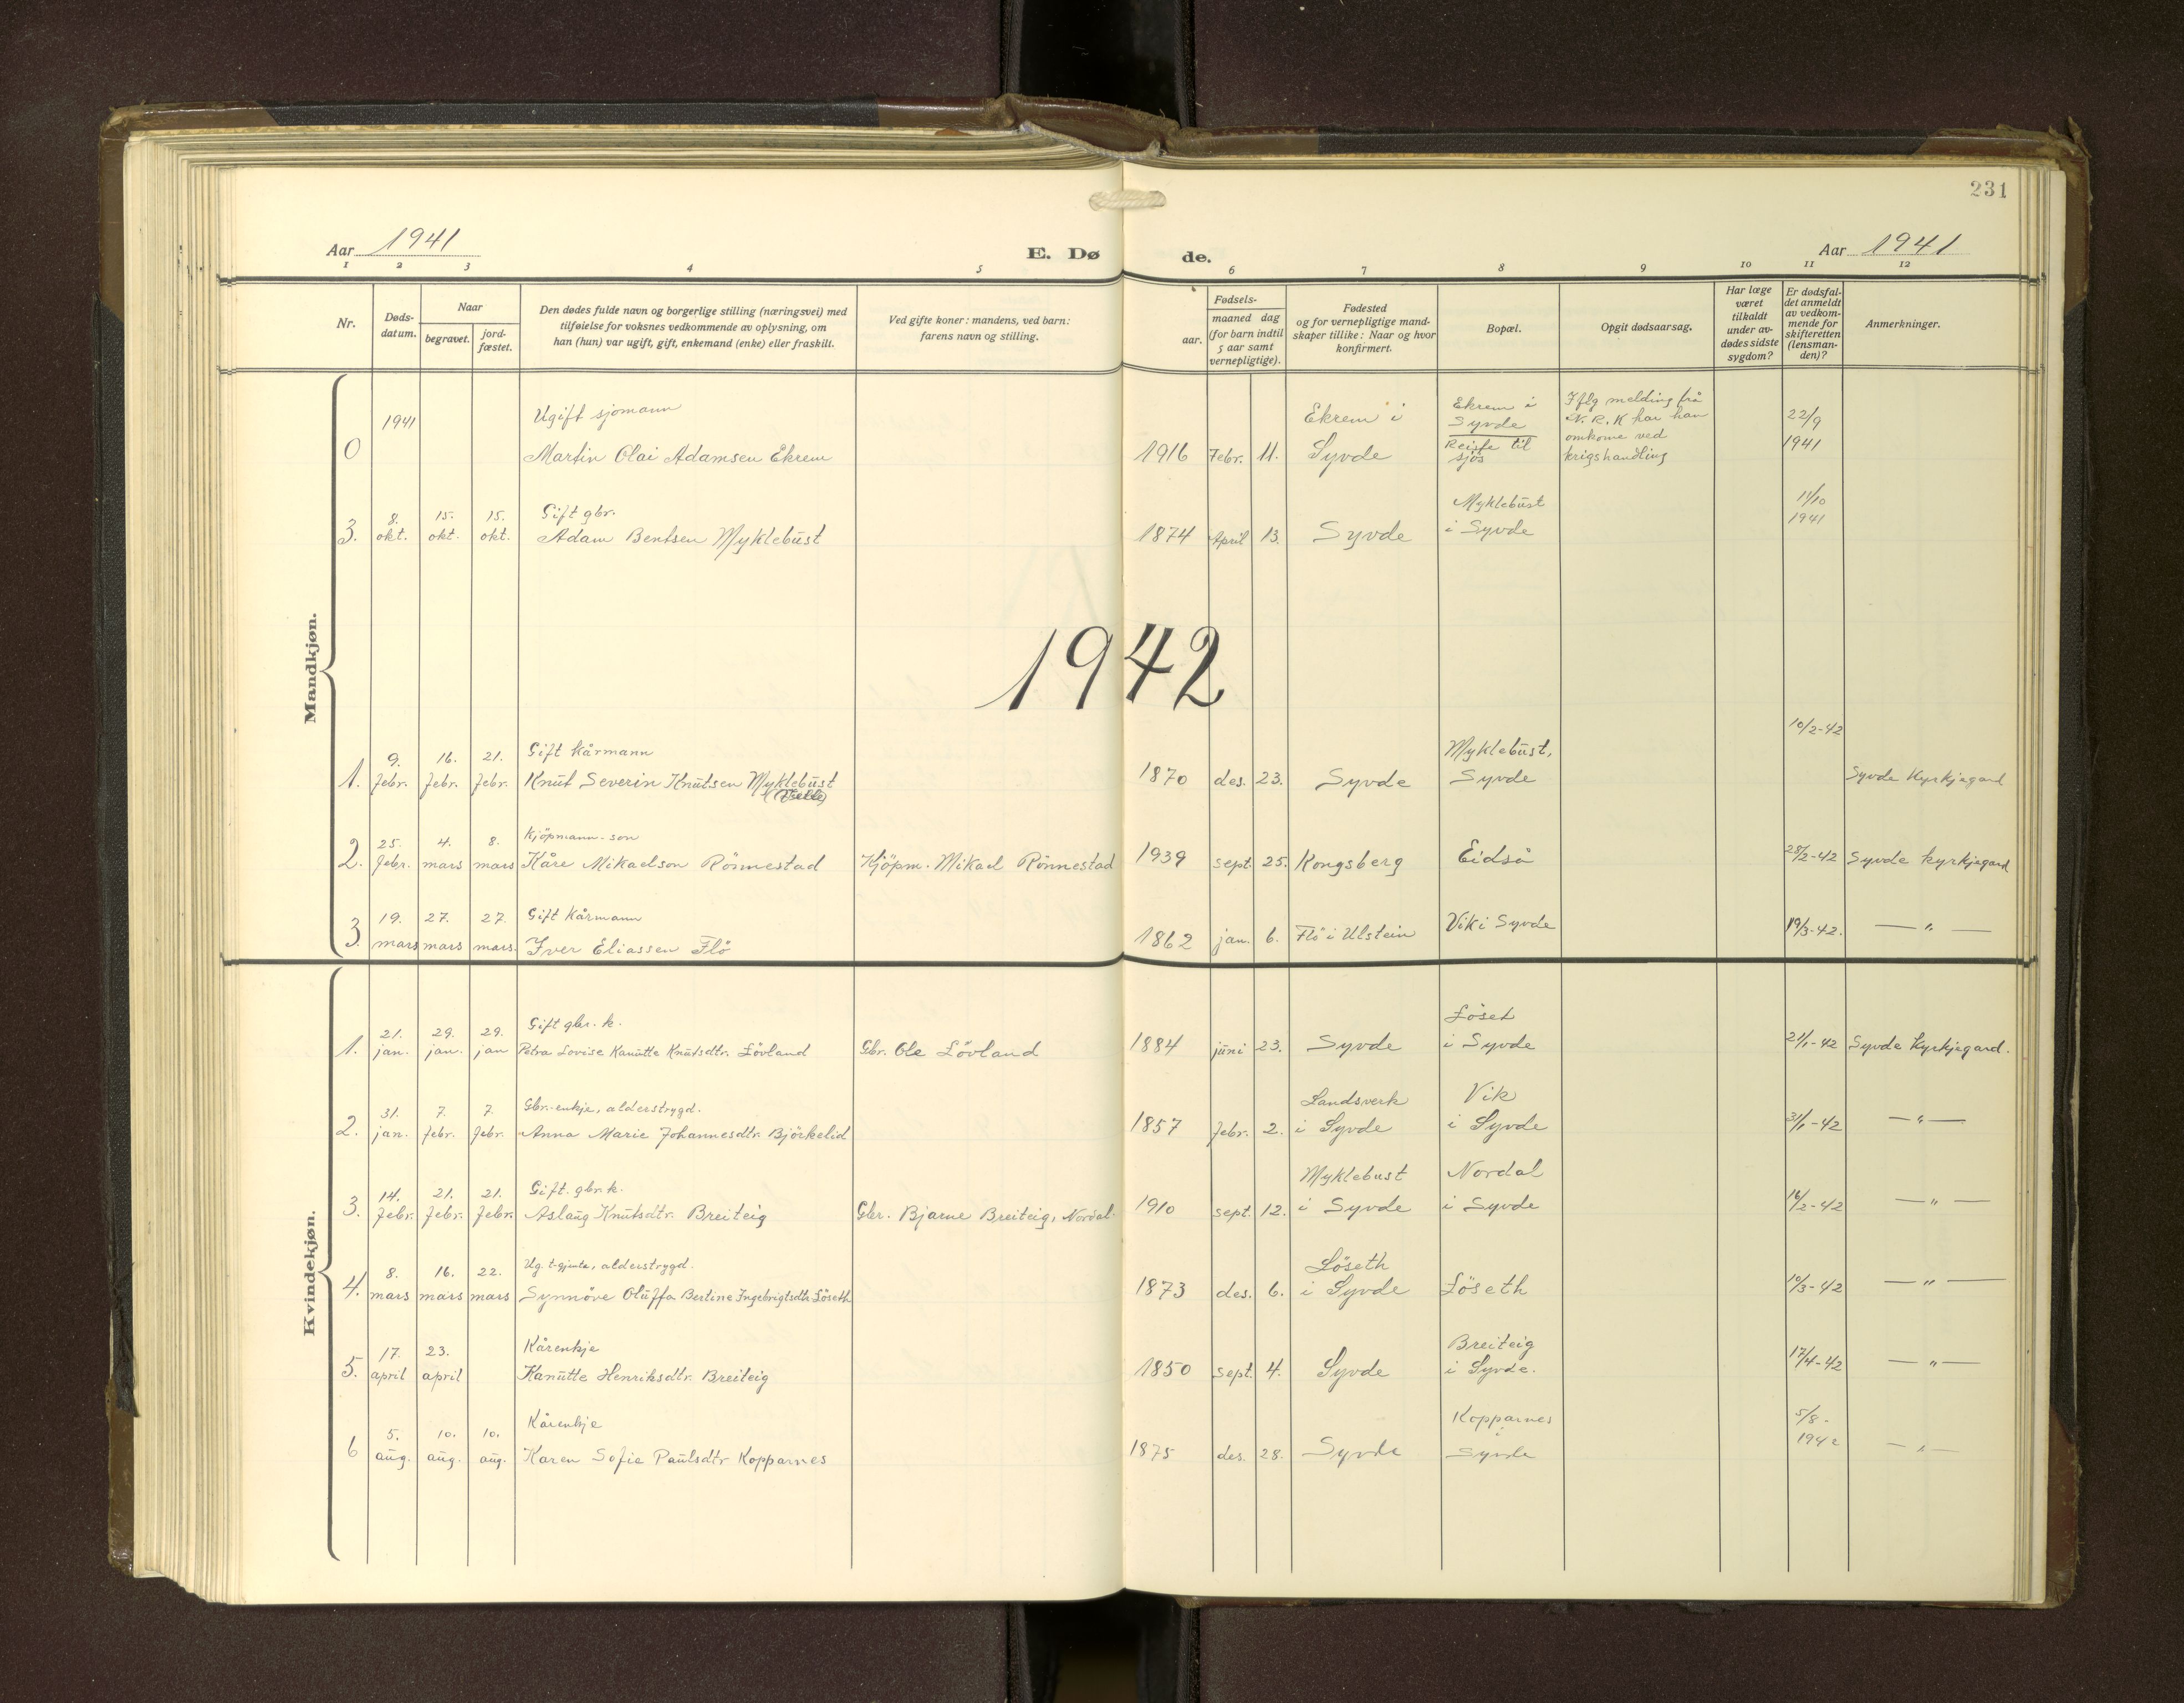 231
Aar 1941
E. Dø
de.
Aar 1941
1 2 3 4 5 6 7 8 9 10 11 12
Nr.
Døds-
datum.
Naar
begravet.
jord-
fæstet.
Den dødes fulde navn og borgerlige stilling (næringsvei) med
tilføielse for voksnes vedkommende av oplysning, om
han (hun) var ugift, gift, enkemand (enke) eller fraskilt.
Ved gifte koner: mandens, ved barn:
farens navn og stilling.
Fødsels-
aar.
maaned dag
(for barn indtil
5 aar samt
vernepligtige).
Fødested
og for vernepligtige mand-
skaper tillike: Naar og hvor
konfirmert.
Bopæl.
Opgit dødsaarsag.
Har læge
været
tilkaldt
under av-
dødes sidste
sygdom?
Er dødsfal-
det anmeldt
av vedkom-
mende for
skifteretten
(lensman-
den)?
Anmerkninger.
Mandkjøn.
0
1941
Ugift sjømann
Martin Olai Adamsen Ekrem
1916 Febr. 11.
Ekrem i
Syvde
Ekrem i
Syvde
Reiste til
sjös
Iflg melding frå
N.R.K har han
omkome ved
krigshandling
22/9
1941
3.
8.
okt.
15.
okt.
15.
okt.
Gift gbr.
Adam Bentsen Myklebust
1874 April 13.
Syvde
Myklebust
i Syvde
11/10
1941
1942
1.
9.
febr.
16.
febr.
21.
febr.
Gift kårmann
Knut Severin Knutsen Myklebust
1870 des. 23.
Syvde
Myklebust,
Syvde
10/2-42
Syvde Kyrkjegard
2.
25.
febr.
4.
mars
8.
mars
Kjöpmann-son
Kåre Mikaelson Rönnestad
Kjöpm. Mikael Rönnestad
1939 sept. 25.
Kongsberg
Eidså
28/2-42
Syvde kyrkjegard
3
19.
mars
27.
mars
27.
mars.
Gift Kårmann
Iver Eliassen Flö
1862 jan. 6.
Flö i Ulstein
Vik i Syvde
19/3-42.
— " —
Kvindekjøn.
1.
21.
jan.
29.
jan.
29.
jan
Gift gbr. k.
Petra Lovise Kanutte Knutsdtr. Lövland
Gbr. Ole Lövland
1884 juni 23.
Syvde
Löset
i Syvde
21/1-42
Syvde Kyrkjegard.
2.
31.
jan.
7.
febr.
7.
febr.
Gbr.-enkje, alderstrygd.
Anna Marie Johannesdtr. Björkelid
1857 febr. 2.
Landsverk
i Syvde
Vik
i Syvde
31/1-42
— " —
3.
14.
febr.
21.
febr.
21.
febr.
Gift. gbr.k.
Aslaug Knutsdtr. Breiteig
Gbr. Bjarne Breiteig, Nordal.
1910 sept. 12.
Myklebust
i Syvde
Nordal
i Syvde
16/2-42
— " —
4.
8.
mars
16.
mars
22.
mars
Ug. t-gjente, alderstrygd.
Synnöve Oluffa Bertine Ingebrigtsdtr. Löseth
1873 des. 6.
Löseth
i Syvde
Löseth
10/3-42
— " —
5.
17.
april
23.
april
Kårenkje
Kanutte Henriksdtr. Breiteig
1850 sept. 4.
Syvde
Breiteig
i Syvde.
17/4-42
— " —
6
5.
aug.
10.
aug.
10.
aug.
Kårenkje
Karen Sofie Paulsdtr Kopparnes
1875 des. 28.
Syvde
Kopparnes
i
Syvde
5/8-
1942
— " —